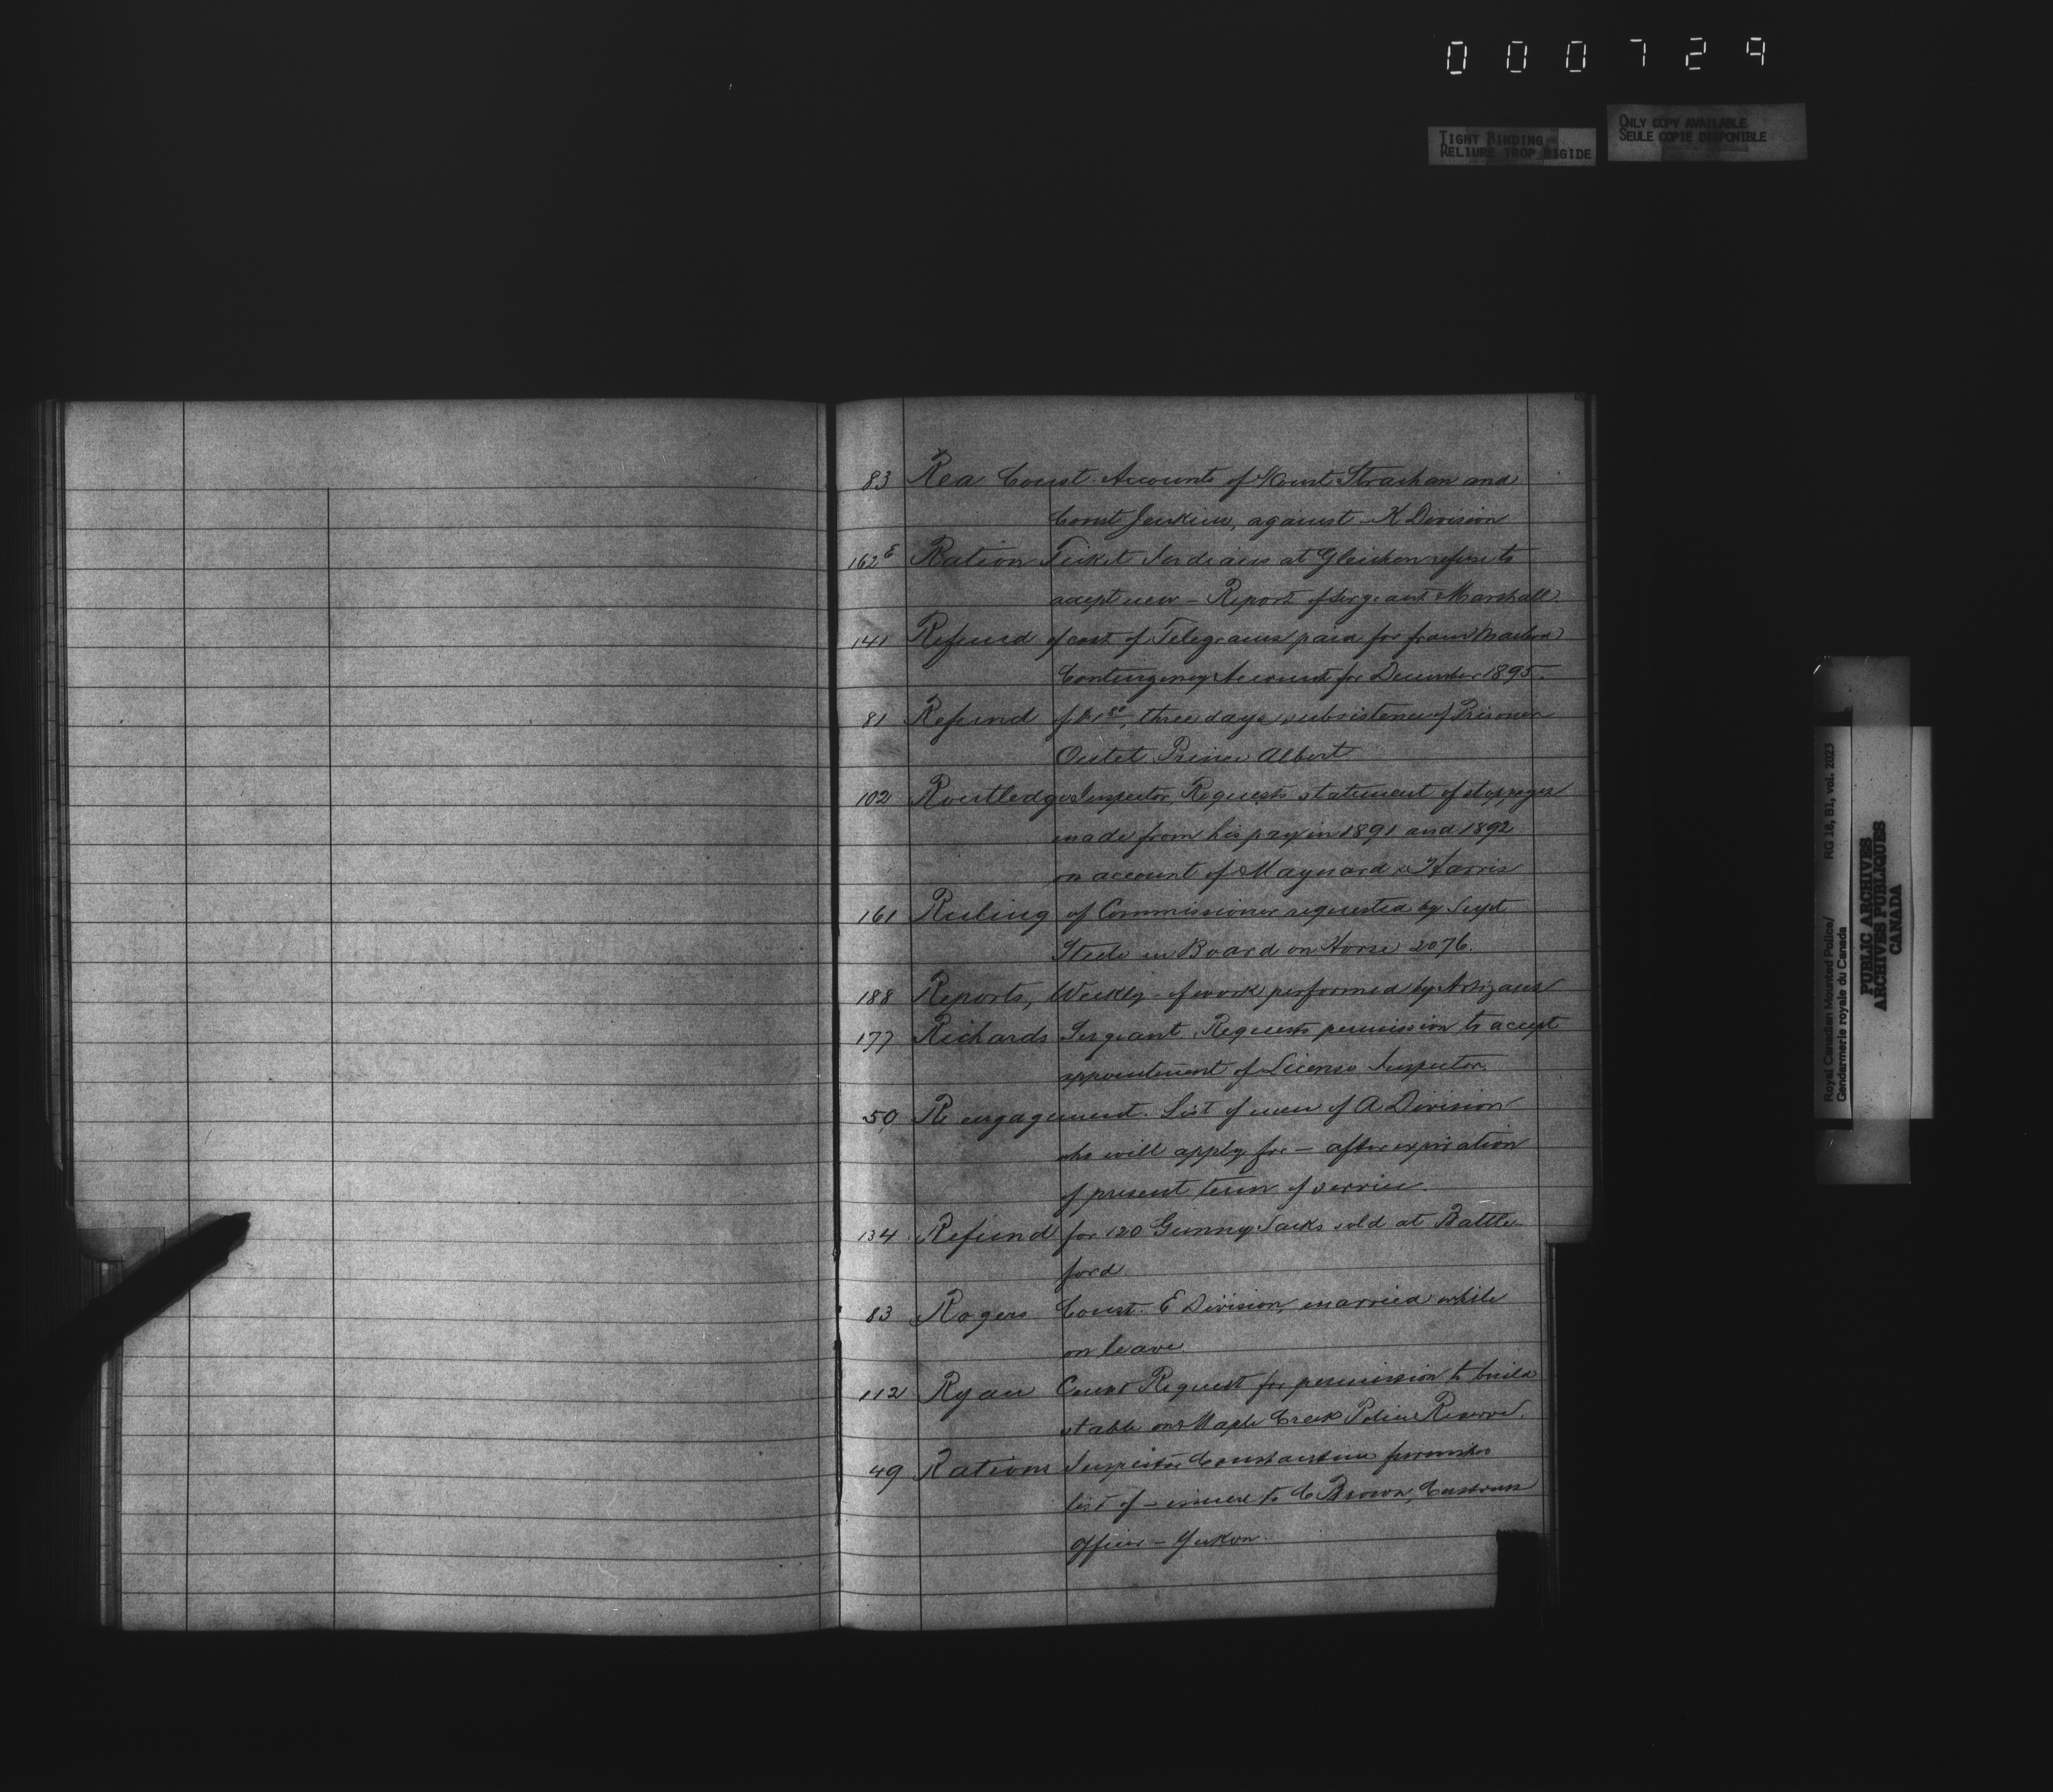 000729
TIGHT BINDING
RELIURE TROP RIGIDE
ONLY COPY AVAILABLE
SEULE COPIE DISPONIBLE
83 Rea Const. Accounts of Strachan and
Const Jenkins, against K Division
162 E Ration Ticket Indians at Gleichen refuse to
accept new - Report of Sergeant Marshall.
141 Refund of cost of Telegrams paid for from Macleod
Contingency Account for December 1895.
81 Refund of $1 50, three days subsistence of Prisoner
Prince Albert
102 Routledge Inspector, Requests statement of stoppages
made from his pay in 1891 and 1892
on account of Maynard & Harris
161 Ruling of Commissioner requested by Supt
Steele in Board on Horse 2076.
188 Reports, Weekly - of work performed by Artizans
177 Richards Sergeant. Requests permission to accept
appointment of License Inspector.
50 Re engagement. List of men of A Division
who will apply for - after expiration
of present term of service.
134 Refund for 120 Gunny Sacks sold at Battle
ford
83 Rogers Const. E Division, married while
on leave.
112 Ryan Const Request for permission to build
stable on Maple Creek Police Reserve.
49 Rations Inspector Constantine furnishes
list of - issued to C Brown, Customs
Officer - Yukon.
Royal Canadian Mounted Police/ RG 18, B1, vol. 2023
Gendarmerie royale du Canada
PUBLIC ARCHIVES
ARCHIVES PUBLIQUES
CANADA